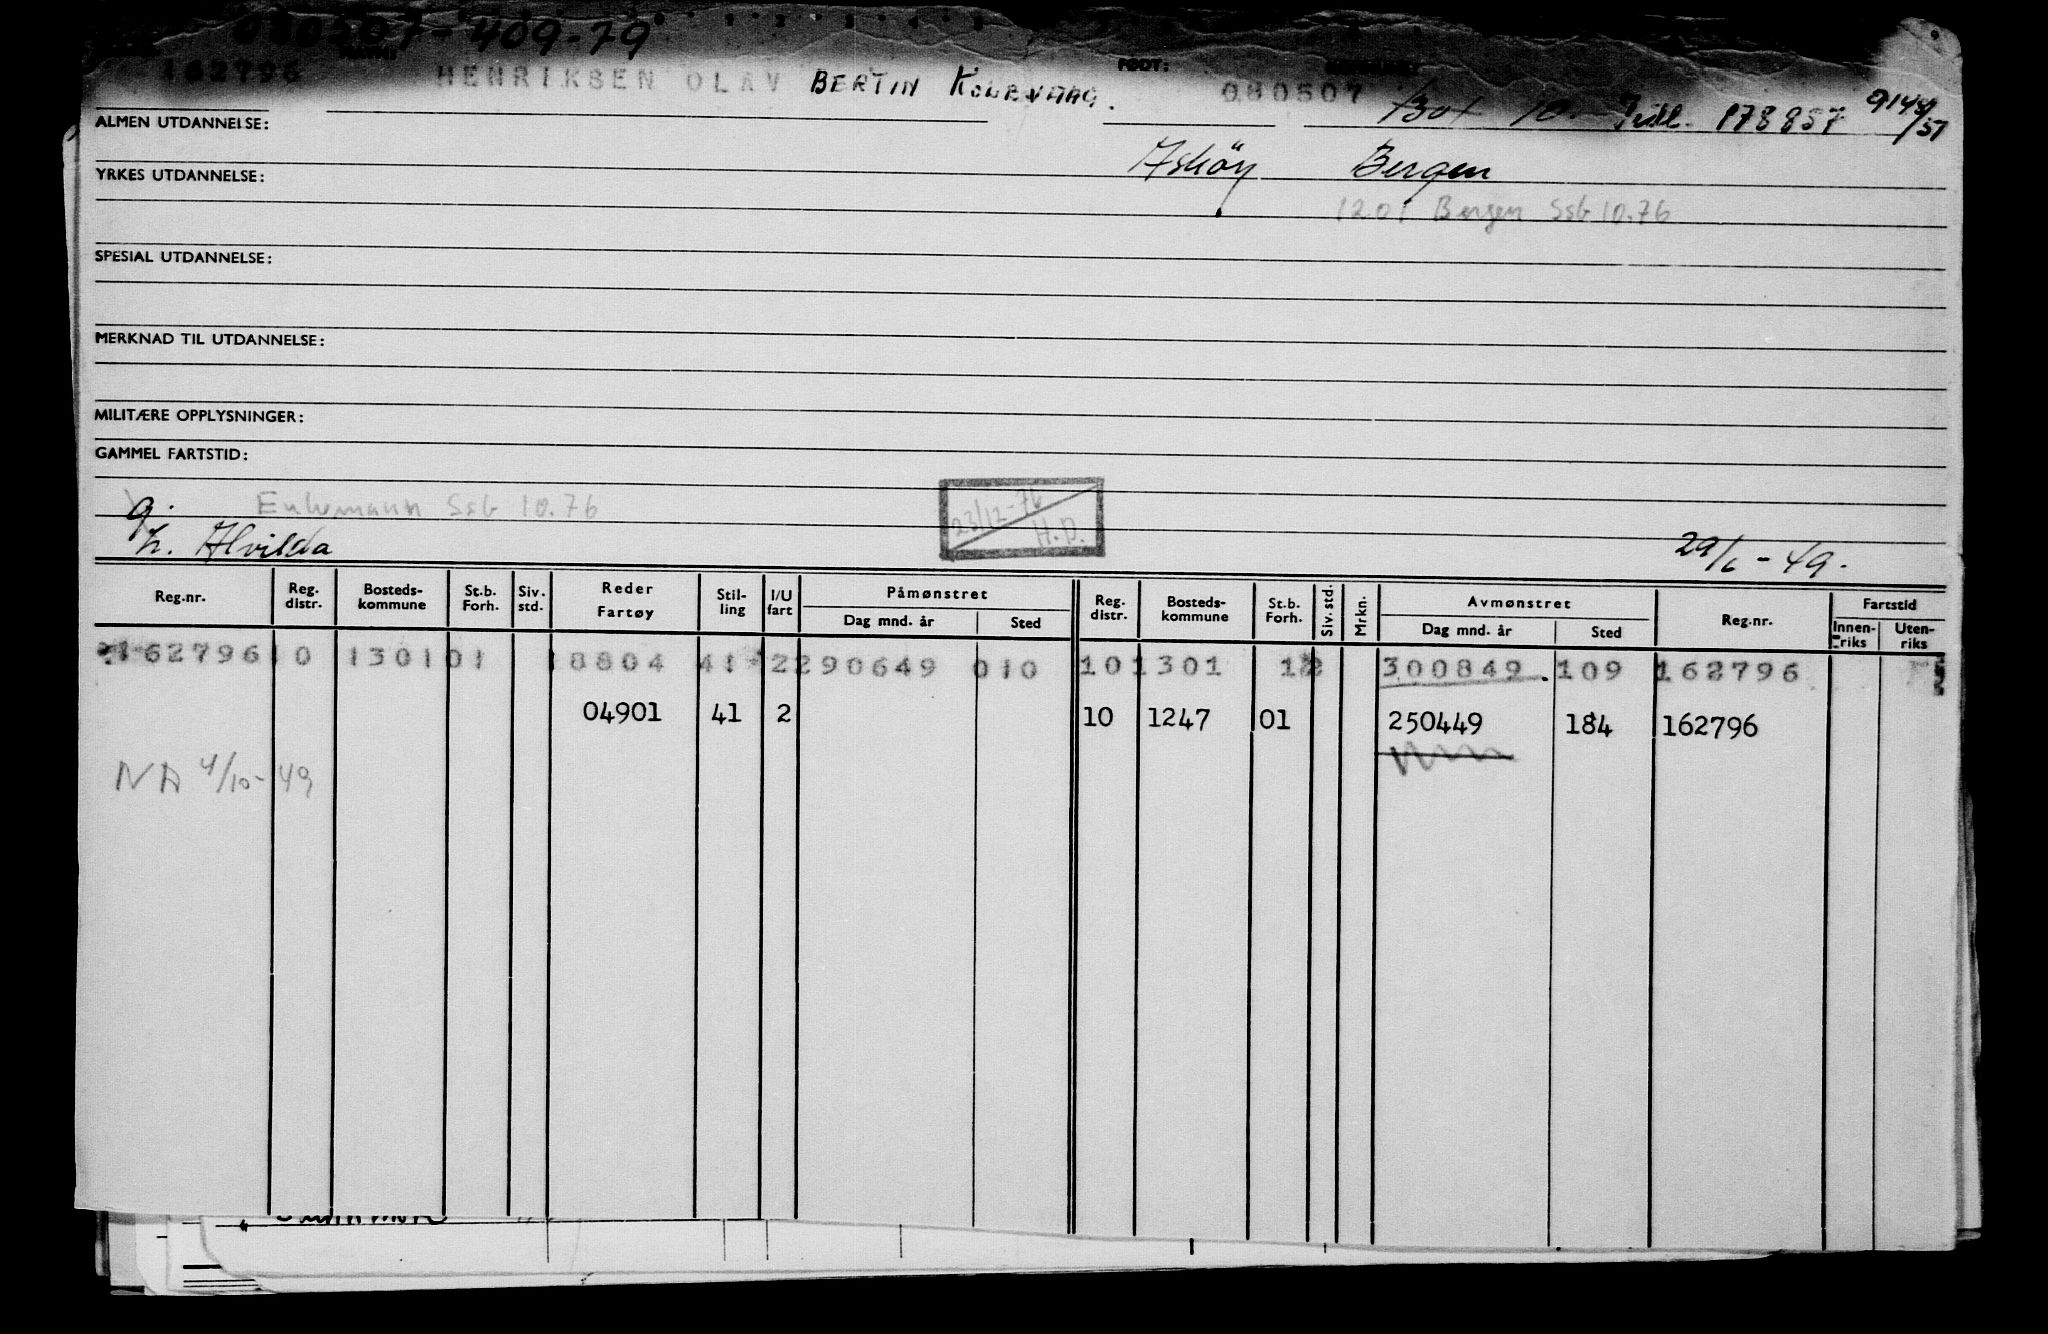 080507-409-79
162796 HENRIKSEN OLAV BERTIN KOLBVAAG. FØDT: 080507 1301 10. Jvll. 178857 9144/57
ALMEN UTDANNELSE:
Askøy Bergen
YRKES UTDANNELSE:
1201 Bergen Ssb 10.76
SPESIAL UTDANNELSE:
MERKNAD TIL UTDANNELSE:
MILITÆRE OPPLYSNINGER:
GAMMEL FARTSTID:
g. Enkemann Ssb 10.76 23/12-76 H.P.
h. Alvilda 29/6-49.
Reg.nr. Reg. distr. Bosteds-kommune St.b. Forh. Siv. std. Reder Fartøy Stil-ling I/U fart Påmønstret Dag mnd. år Sted Reg. distr. Bosteds-kommune St.b. Forh. Siv. std. Mrkn. Avmønstret Dag mnd. år Sted Reg.nr. Fartstid Innen-riks Uten-riks
162796 10 1301 01 8804 41 2 290649 010 10 1301 12 300849 109 162796
04901 41 2 10 1247 01 250449 184 162796
NA 4/10-49